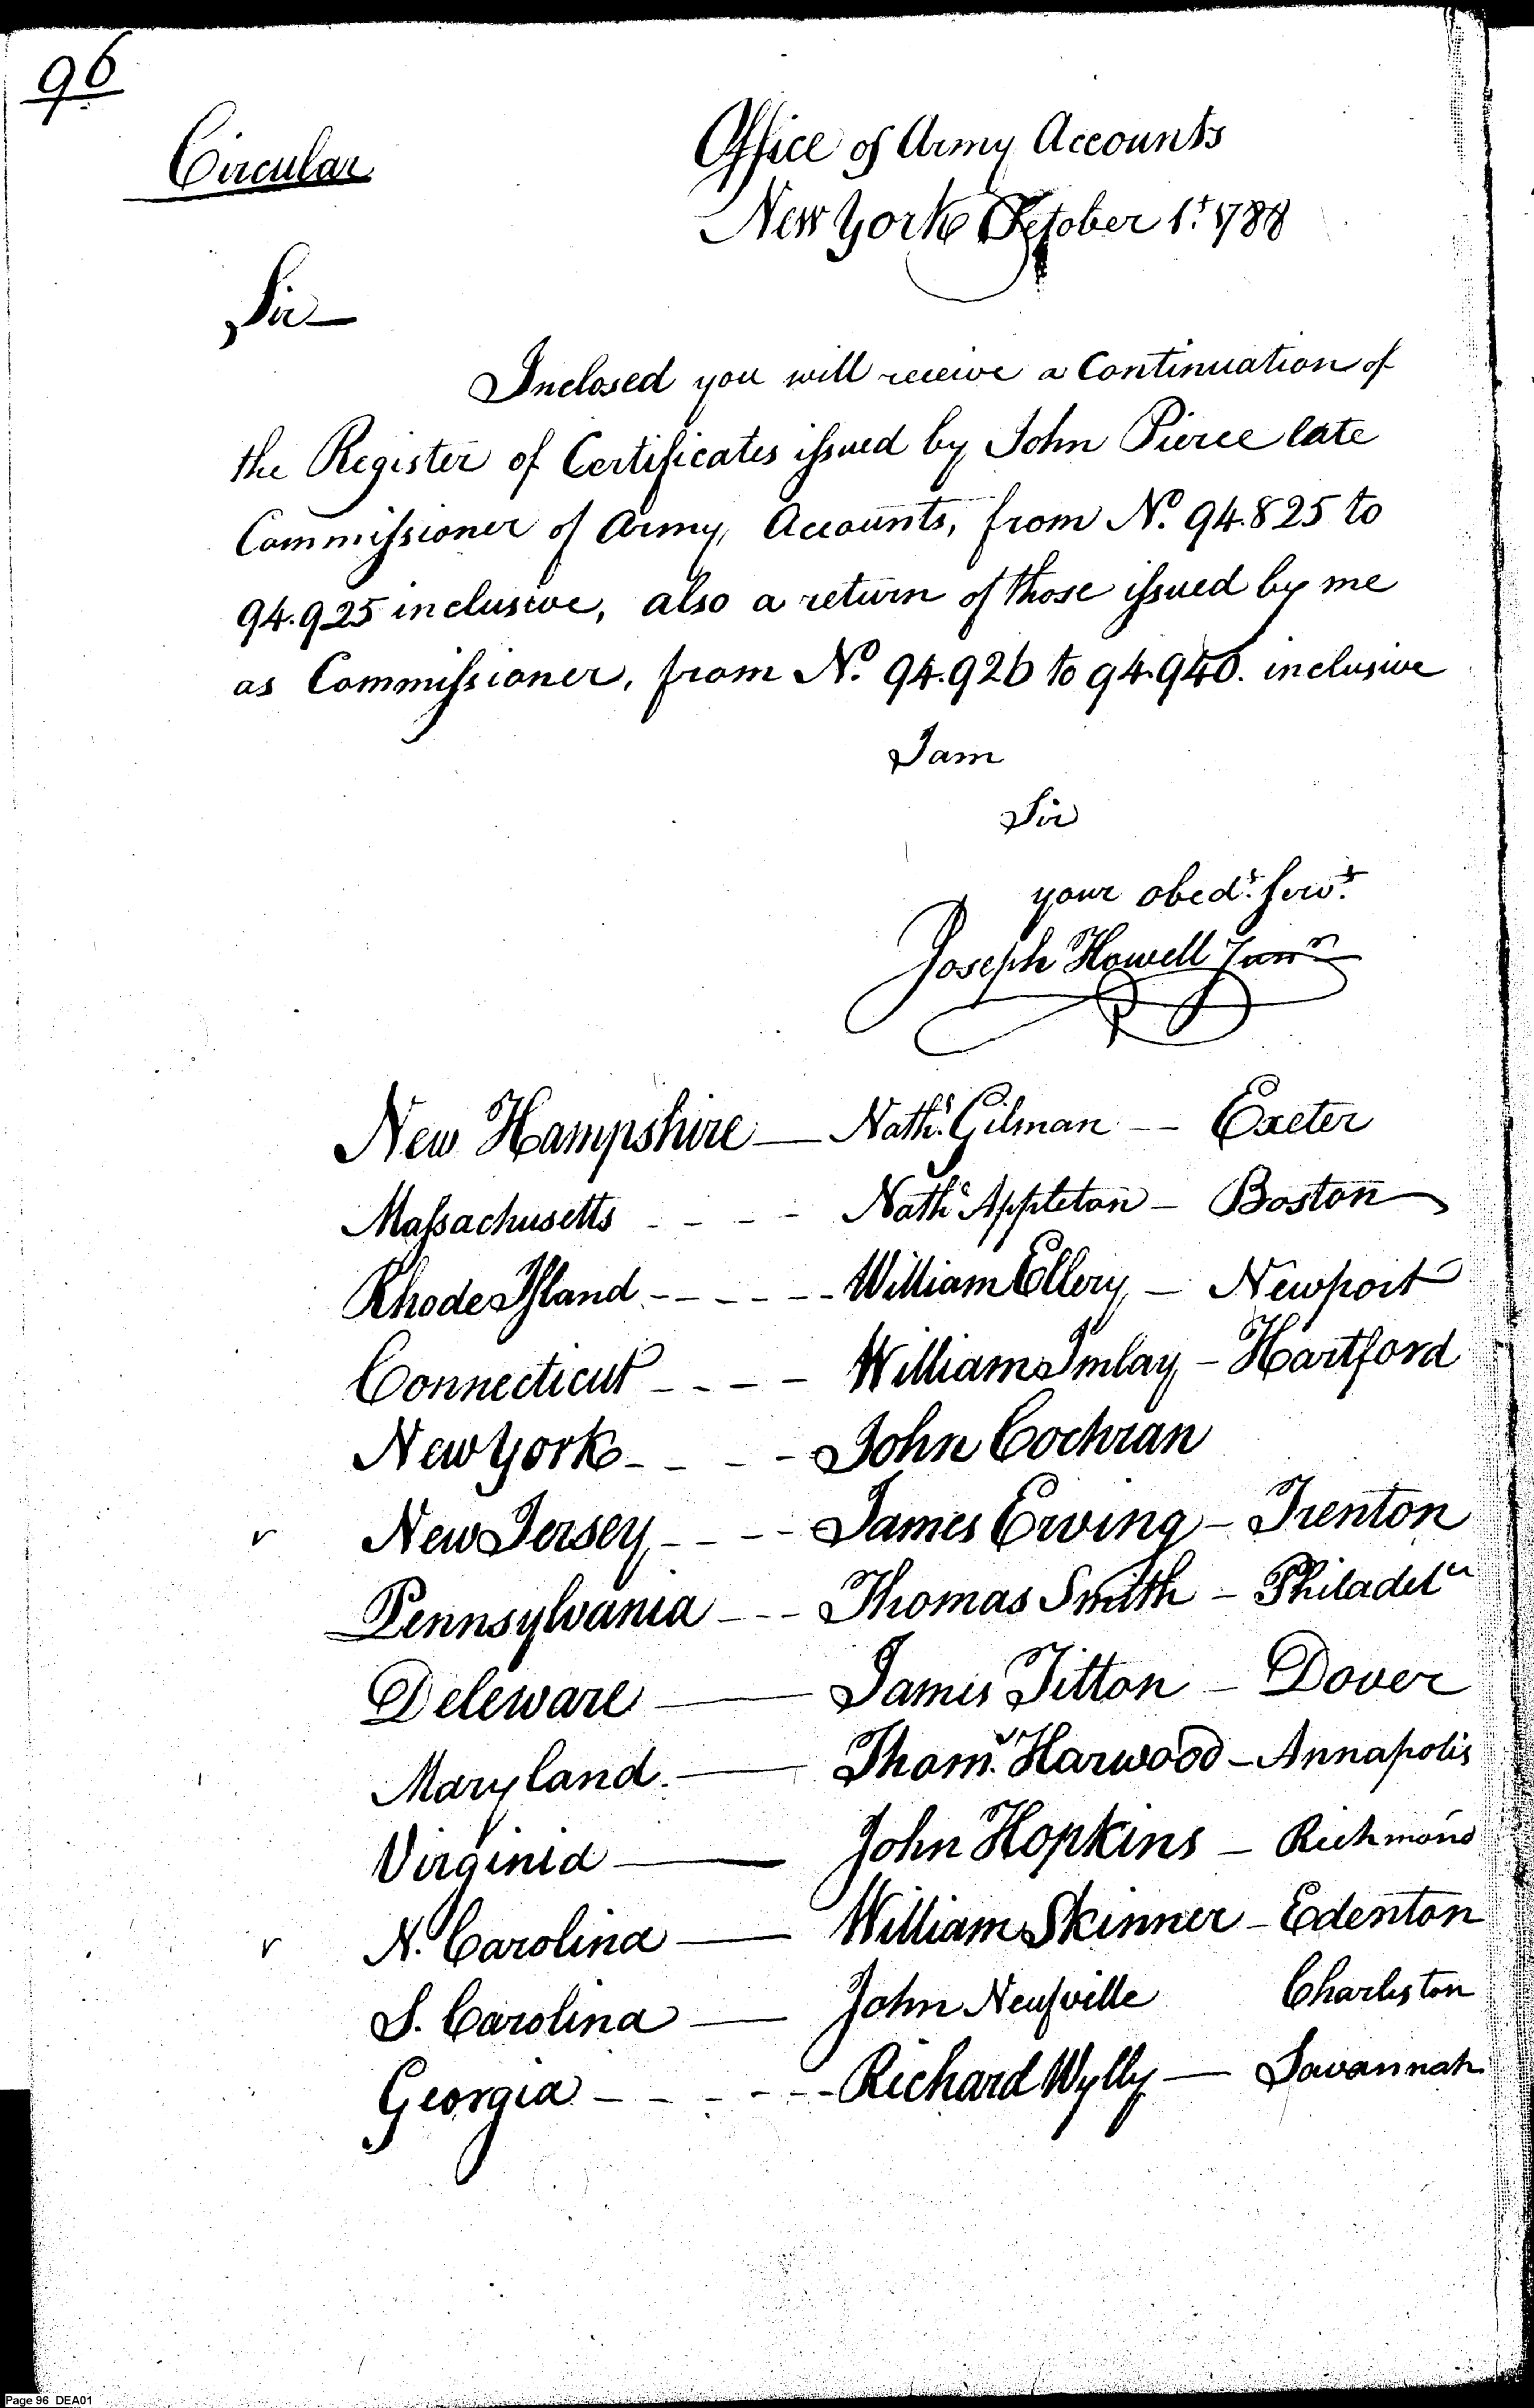 96
Circular
Office of Army Accounts
New York October 1st 1788
Sir
Inclosed you will receive a Continuation of
the Register of Certificates issued by John Pierce late
Commissioner of Army Accounts, from No. 94.825 to
94.925 inclusive, also a return of those issued by me
as Commissioner, from No. 94.926 to 94.940. inclusive
I am
Sir
your obedt. servt.
Joseph Howell Junr
New Hampshire — Nathl. Gilman -- Exeter
Massachusetts - - - - Nathl Appleton - Boston
Rhode Island - - - - - - William Ellery - Newport
Connecticut - - - - William Imlay - Hartford
New York - - - - John Cochran
v New Jersey - - - - James Ewing - Trenton
Pennsylvania - - - Thomas Smith - Philadela
Deleware — James Titton - Dover
Maryland. — Thoms. Harwood - Annapolis
Virginia — John Hopkins - Richmond
v N. Carolina — William Skinner - Edenton
S. Carolina — John Neufville Charleston
Georgia - - - - - - Richard Wylly — Savannah
Page 96 DEA01